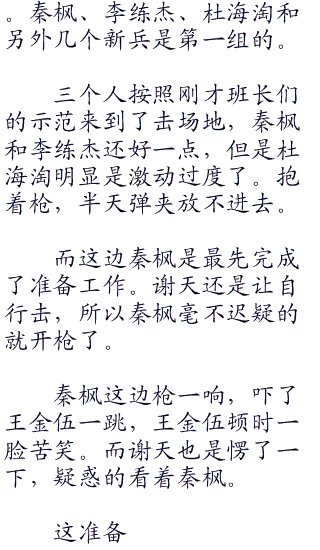 。秦枫、李练杰、杜海淘和
另外几个新兵是第一组的。
三个人按照刚才班长们
的示范来到了击场地，秦枫
和李练杰还好一点，但是杜
海淘明显是激动过度了。抱
着枪，半天弹夹放不进去。
而这边秦枫是最先完成
了准备工作。谢天还是让自
行击，所以秦枫毫不迟疑的
就开枪了。
秦枫这边枪一响，吓了
王金伍一跳，王金伍顿时一
脸苦笑。而谢天也是愣了一
下，疑惑的看着秦枫。
这准备